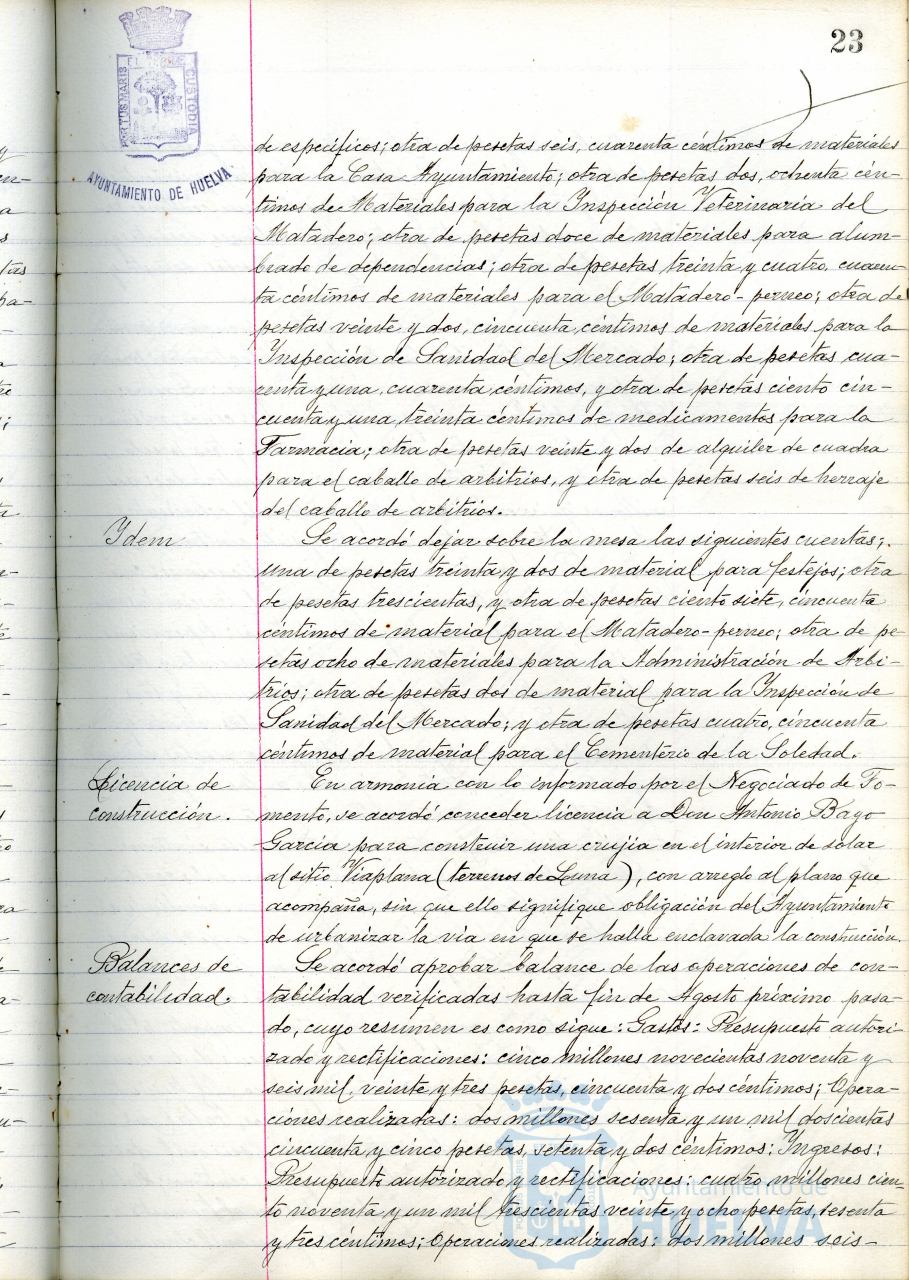 23
PORTUS MARIS ET TERRAE CUSTODIA
AYUNTAMIENTO DE HUELVA
de específicos; otra de pesetas seis, cuarenta céntimos de materiales
para la Casa Ayuntamiento; otra de pesetas dos, ochenta cén-
timos de Materiales para la Inspección Veterinaria del
Matadero; otra de pesetas doce de materiales para alum-
brado de dependencias; otra de pesetas treinta y cuatro, cuaren-
ta céntimos de materiales para el Matadero-perneo; otra de
pesetas veinte y dos, cincuenta céntimos de materiales para la
Inspección de Sanidad del Mercado; otra de pesetas cua-
renta y una, cuarenta céntimos, y otra de pesetas ciento cin-
cuenta y una treinta céntimos de medicamentos para la
Farmacia; otra de pesetas veinte y dos de alquiler de cuadra
para el caballo de arbitrios, y otra de pesetas seis de herraje
del caballo de arbitrios.
Ydem
Se acordó dejar sobre la mesa las siguientes cuentas;
una de pesetas treinta y dos de material para festejos; otra
de pesetas trescientas, y otra de pesetas ciento siete, cincuenta
céntimos de material para el Matadero-perneo; otra de pe-
setas ocho de materiales para la Administración de Arbi-
trios; otra de pesetas dos de material para la Inspección de
Sanidad del Mercado; y otra de pesetas cuatro, cincuenta
céntimos de material para el Cementerio de la Soledad.
Licencia de
construcción.
En armonia con lo informado por el Negociado de Fo-
mento, se acordó conceder licencia a Don Antonio Bago
Garcia para construir una crujia en el interior de solar
al sitio Viaplana (terrenos de Luna), con arreglo al plano que
acompaña, sin que ello signifique obligación del Ayuntamiento
de urbanizar la via en que se halla enclavada la construcción.
Balances de
contabilidad.
Se acordó aprobar balance de las operaciones de con-
tabilidad verificadas hasta fin de Agosto próximo pasa-
do, cuyo resumen es como sigue: Gastos: Presupuesto autori-
zado y rectificaciones: cinco millones novecientas noventa y
seis mil, veinte y tres pesetas, cincuenta y dos céntimos; Opera-
ciones realizadas: dos millones sesenta y un mil doscientas
cincuenta y cinco pesetas, setenta y dos céntimos: Ingresos:
Presupuesto autorizado y rectificaciones: cuatro millones cien-
to noventa y un mil trescientas veinte y ocho pesetas, sesenta
y tres céntimos; Operaciones realizadas: dos millones seis-
Ayuntamiento de
HUELVA